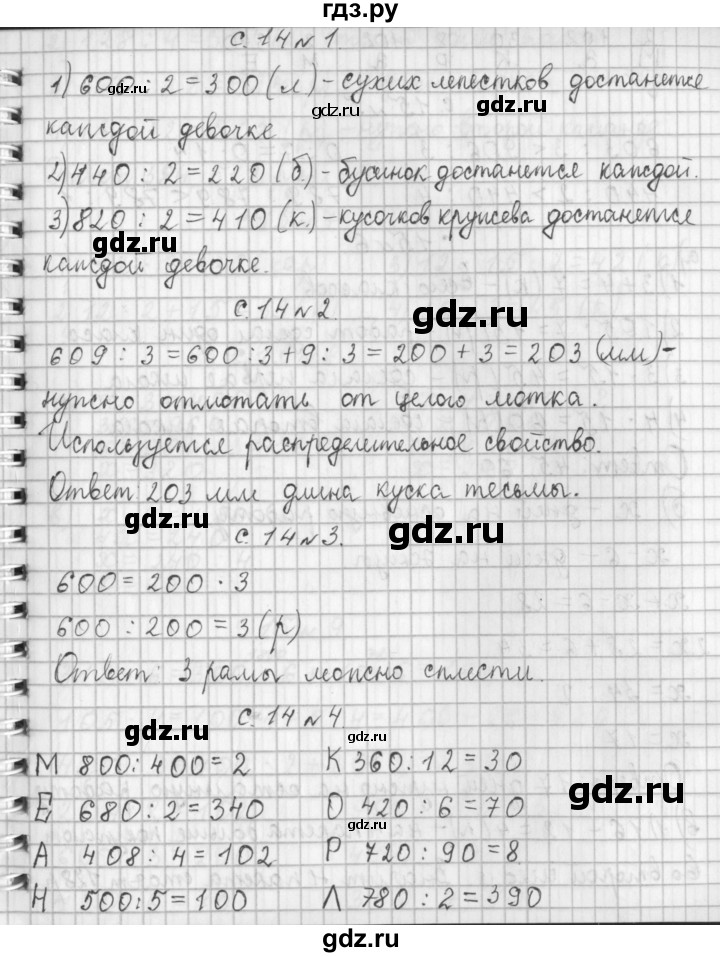 гдз.ру
с. 14 № 1.
1) 600 : 2 = 300 (л) - сухих лепестков достанется
каждой девочке
2) 440 : 2 = 220 (б) - бусинок достанется каждой.
3) 820 : 2 = 410 (к.) - кусочков кружева достанется
каждой девочке.
с. 14 № 2.
609 : 3 = 600 : 3 + 9 : 3 = 200 + 3 = 203 (мм) -
нужно отмотать от целого мотка.
Используется распределительное свойство.
Ответ: 203 мм длина куска тесьмы.
с. 14 № 3.
600 = 200 · 3
600 : 200 = 3 (р)
Ответ: 3 рамы можно сплести.
с. 14 № 4
М 800 : 400 = 2 К 360 : 12 = 30
Е 680 : 2 = 340 О 420 : 6 = 70
А 408 : 4 = 102 Р 720 : 90 = 8
Н 500 : 5 = 100 Л 780 : 2 = 390
gdz.ru
gdz.ru
gdz.ru
gdz.ru
gdz.ru
gdz.ru
gdz.ru
gdz.ru
gdz.ru
gdz.ru
gdz.ru
gdz.ru
gdz.ru
gdz.ru